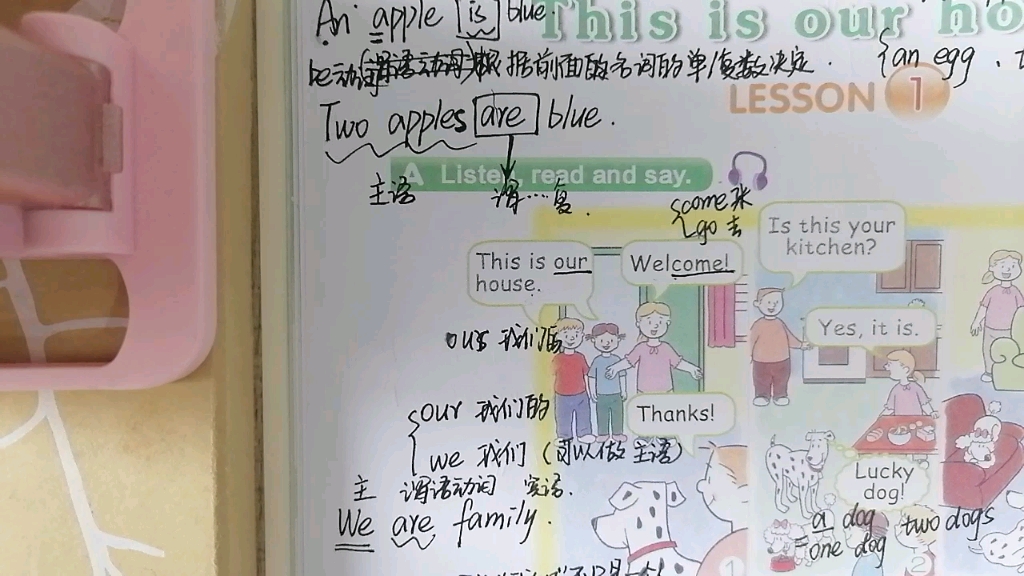 An apple is blue.
This is our ho
be动词 根据前面的名词的单/复数决定.
an egg.
LESSON 1
Two apples are blue.
A Listen, read and say.
主语 谓…复.
come 来
go 去
Is this your
kitchen?
This is our
house.
Welcome!
Yes, it is.
our 我们的
Thanks!
our 我们的
we 我们 (可以做主语)
Lucky
dog!
主 谓语动词 宾语.
We are family.
a dog two dogs
=one dog
1
2